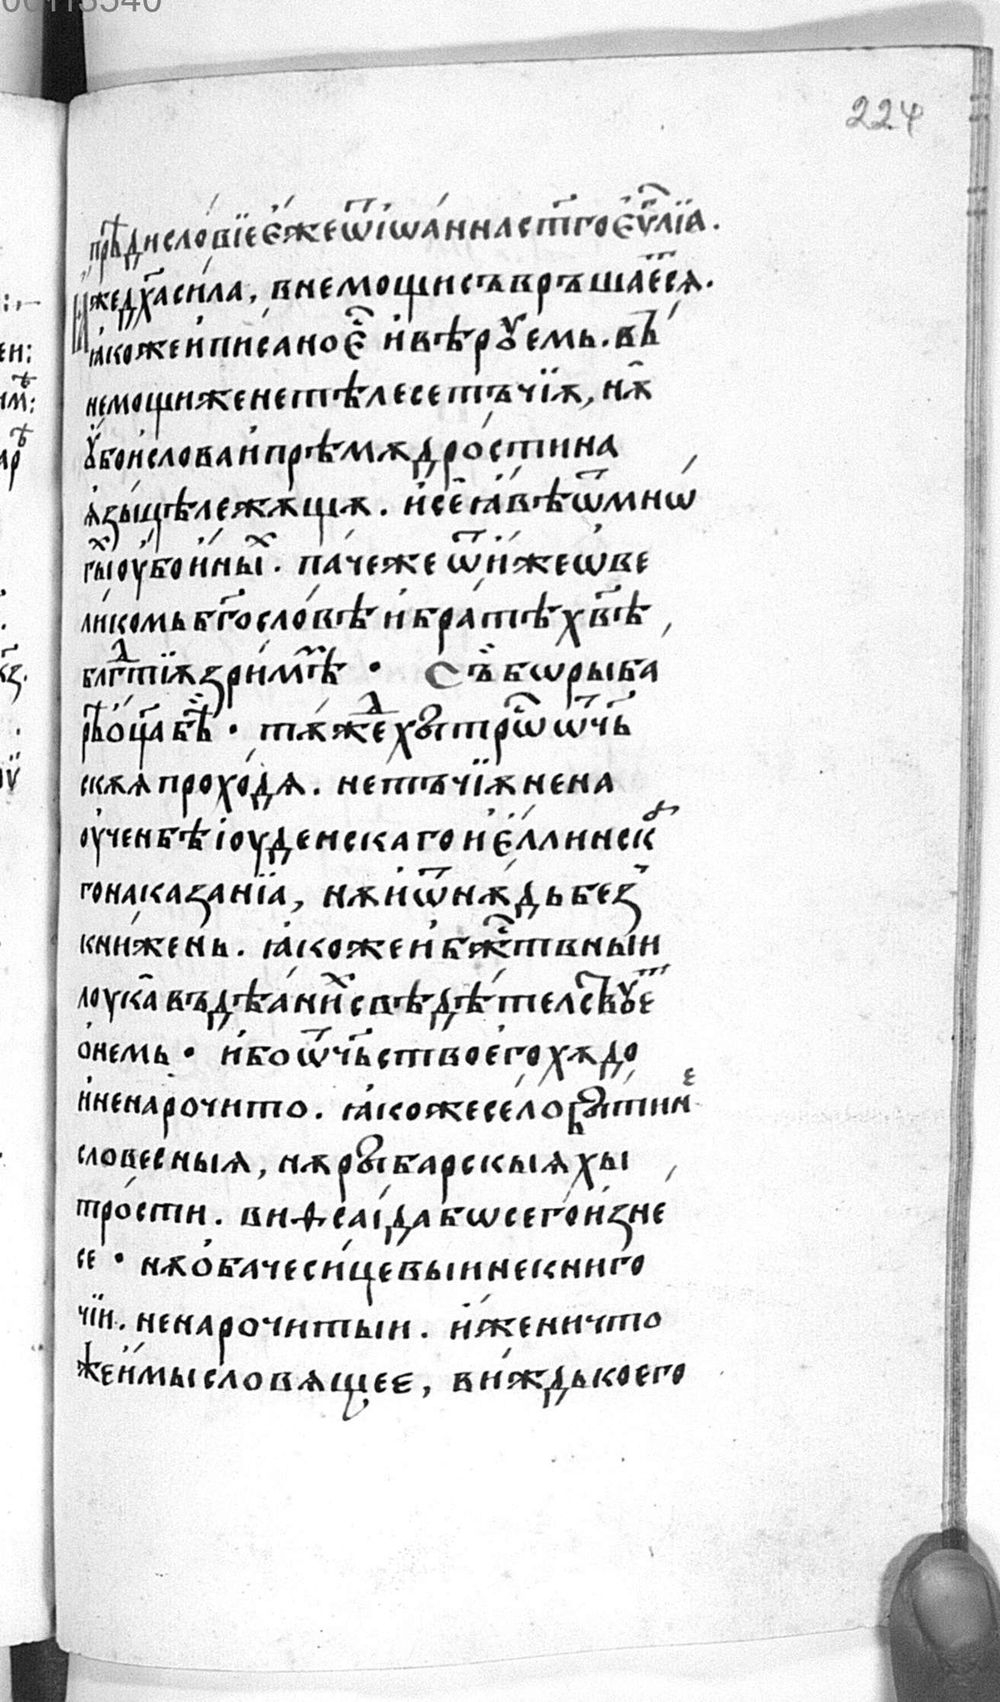 224
прѣдисловїе еже ѿ іѡанна ст҃го еѵ҃лїа.
Иже дх҃а сила, в немощи съвръшаетсѧ.
ꙗкоже и писано е҆ и вѣрꙋемь. въ
немощи же не тѣлесе тъчїѫ, нѫ
ꙋбо и слова и прѣмѫдрости на
ѧзыцѣ лежѧщѫ. и се ꙗвѣ ѿ мнѡ
гыⷯ оубо ины̏ⷯ. паче же ѿ иже ѡ ве
ликомь бг҃ословѣ и братѣ хв҃ѣ
блгⷣтїѫ зримѣ · Съ бѡ рыба
рѣ ѻц҃а бѣ · тѫжⷣе хытрѡⷭ ѿчь
скѫѧ проходѧ. не тъчїѫ не на
оучен бѣ іоуденскаго и еллинскⷪ
го наказанїа, нѫ и ѿнѫдь без
книжень. ꙗкоже и бжⷭтвныи
лоука въ дѣанїиⷯ свѣдѣтелствꙋеⷮ
о немь · ибо ѿчьство его хѫдо
и ненарочито. ꙗкоже село въ
словесныѧ, нѫ рыбарскыѧ хы
трости. виѳсаіда бѡ сего изне
се · нѫ обаче сицевыи некниго
чїи. ненарочитыи. иже ничто
же имы словѧщее, виждь коего